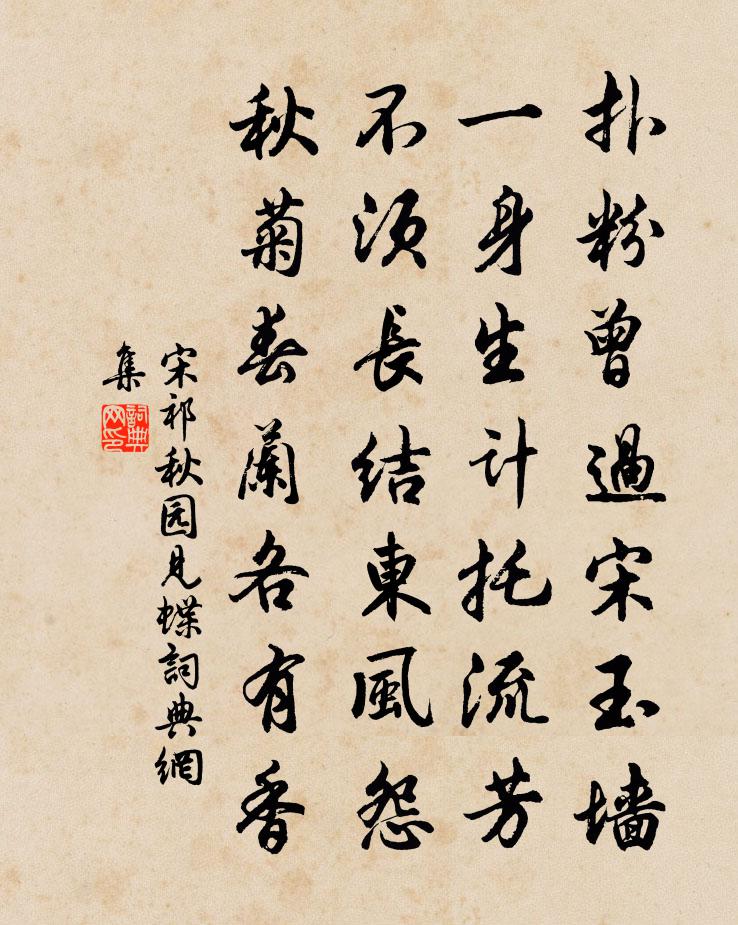 扑粉曾過宋玉墙
一身生计托流芳
不須長結東風怨
秋菊春蘭各有香
宋祁秋园見蝶詞典網
集
詞典网印